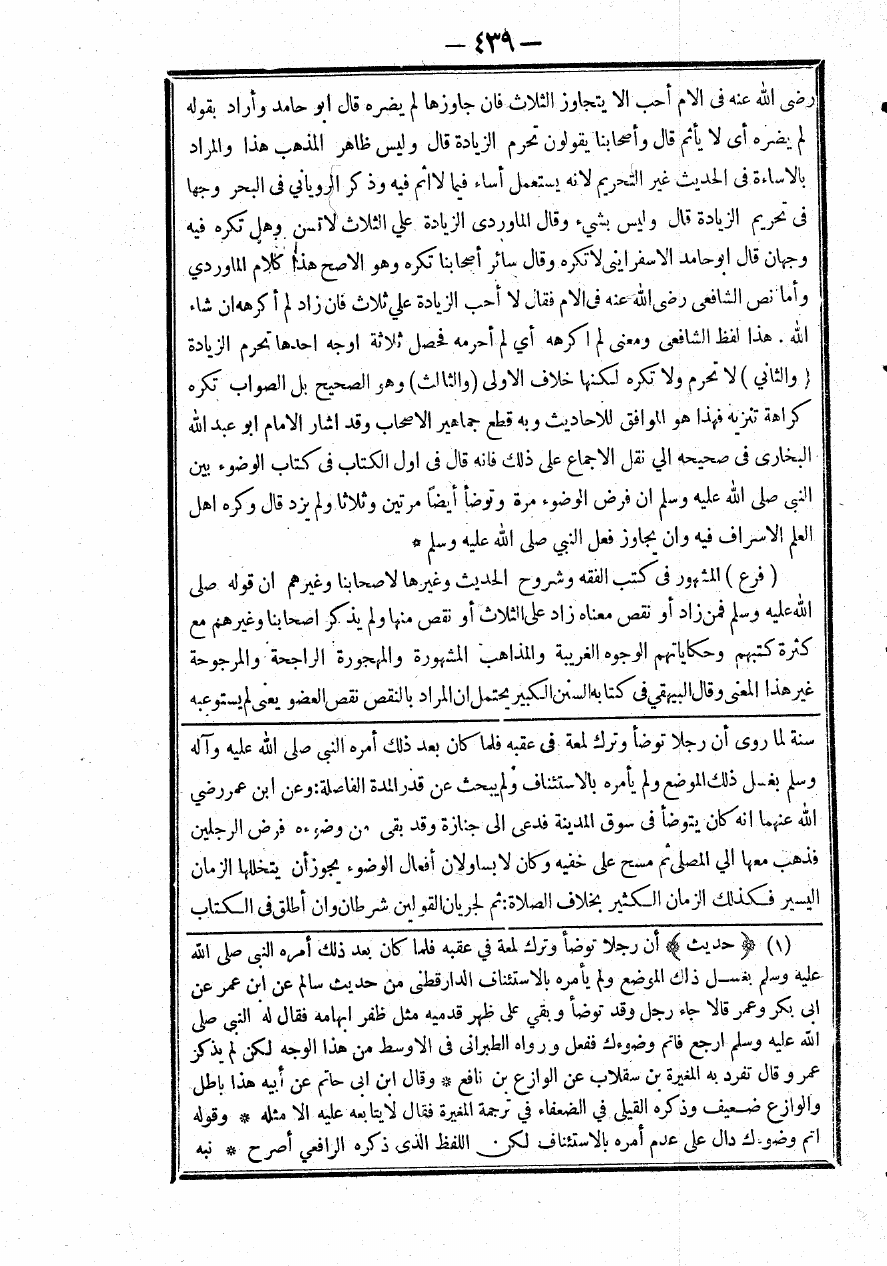 — ٤٣٩ —
رضى الله عنه فى الام أحب الا يتجاوز الثلاث فان جاوزها لم يضره قال ابو حامد وأراد بقوله
لم يضره أى لا يأثم قال وأصحابنا يقولون تحرم الزيادة قال وليس ظاهر المذهب هذا والمراد
بالاساءة فى الحديث غير التحريم لانه يستعمل أساء فيما لااثم فيه وذكر الروياني فى البحر وجها
فى تحريم الزيادة قال وليس بشيء وقال الماوردى الزيادة علي الثلاث لاتسن وهل تكره فيه
وجهان قال ابوحامد الاسفرايني لاتكره وقال سائر أصحابنا تكره وهو الاصح هذا كلام الماوردي
وأما نص الشافعى رضى الله عنه فى الام فقال لا أحب الزيادة علي ثلاث فان زاد لم أكرهه ان شاء
الله . هذا لفظ الشافعى ومعنى لم اكرهه أي لم أحرمه فحصل ثلاثة اوجه احدها تحرم الزيادة
( والثاني ) لا تحرم ولا تكره لكنها خلاف الاولى (والثالث) وهو الصحيح بل الصواب تكره
كراهة تنزيه فهذا هو الموافق للاحاديث وبه قطع جماهير الاصحاب وقد اشار الامام ابو عبد الله
البخارى فى صحيحه الي نقل الاجماع على ذلك فانه قال فى اول الكتاب فى كتاب الوضوء بين
النبى صلى الله عليه وسلم ان فرض الوضوء مرة وتوضأ أيضاً مرتين وثلاثا ولم يزد قال وكره اهل
العلم الاسراف فيه وان يجاوز فعل النبي صلى الله عليه وسلم *
( فرع ) المشهور فى كتب الفقه وشروح الحديث وغيرها لاصحابنا وغيرهم ان قوله صلى
الله عليه وسلم فمن زاد أو نقص معناه زاد على الثلاث أو نقص منها ولم يذكر اصحابنا وغيرهم مع
كثرة كتبهم وحكاياتهم الوجوه الغريبة والمذاهب المشهورة والمهجورة الراجحة والمرجوحة
غير هذا المعنى وقال البيهقي فى كتابه السنن الكبير يحتمل ان المراد بالنقص نقص العضو يعنى لم يستوعبه
سنة لما روى أن رجلا توضأ وترك لمعة فى عقبه فلما كان بعد ذلك أمره النبي صلى الله عليه وآله
وسلم بغسل ذلك الموضع ولم يأمره بالاستئناف ولم يبحث عن قدر المدة الفاصلة:وعن ابن عمر رضي
الله عنهما انه كان يتوضأ فى سوق المدينة فدعى الى جنازة وقد بقى من وضوءه فرض الرجلين
فذهب معها الي المصلى ثم مسح على خفيه وكان لابساولان أفعال الوضوء يجوز أن يتخللها الزمان
اليسير فكذلك الزمان الكثير بخلاف الصلاة:ثم لجريان القولين شرطان وان أطلق فى الكتاب
(١) ﴿ حديث ﴾ أن رجلا توضأ وترك لمعة في عقبه فلما كان بعد ذلك أمره النبي صلى الله
عليه وسلم بغسل ذاك الموضع ولم يأمره بالاستئناف الدارقطنى من حديث سالم عن ابن عمر عن
ابى بكر وعمر قالا جاء رجل وقد توضأ وبقي على ظهر قدميه مثل ظفر ابهامه فقال له النبي صلى
الله عليه وسلم ارجع فاتم وضوءك ففعل ورواه الطبرانى فى الاوسط من هذا الوجه لكن لم يذكر
عمر وقال تفرد به المغيرة بن سقلاب عن الوازع بن نافع * وقال ابن ابى حاتم عن أبيه هذا باطل
والوازع ضعيف وذكره القيلي في الضعفاء في ترجمة المغيرة فقال لا يتابعه عليه الا مثله * وقوله
اتم وضوءك دال على عدم أمره بالاستئناف لكن اللفظ الذى ذكره الرافعي أصرح * نبه